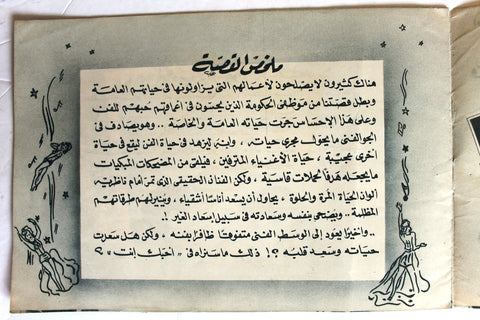 ملخص القصة
هناك كثيرون لا يصلحون لأعمالهم التى يزاولونها فى حياتهم العامة
وبطل قصتنا من موظفى الحكومة الذين يحسون فى أعماقهم حبهم للفن
وعلى هذا الإحساس جرت حياته العامة والخاصة .. وهو يصادف فى
الجو الفنى ما يحول مجرى حياته ، وإنه ليزهد فى حياة الفن ليقع فى حياة
أخرى عجيبة ، حياة الأغنياء المترفين ، فيلقى من المضحكات المبكيات
ما يجعله هدفا لحملات قاسية ، ولكن الفنان الحقيقى الذى تمر أمام ناظريه
ألوان الحياة المرة والحلوة ، يحاول أن يسعد أناسا أشقياء ، وينير لهم طرقاتهم
المظلمة .. ويضحى بنفسه وبسعادته فى سبيل إسعاد الغير !
.. وأخيرا يعود إلى الوسط الفنى متفوقا ظافرا بفنه ، ولكن هل سعدت
حياته وسعيد قلبه ؟! ذلك ما ستراه فى " أحبك إنت " ؟